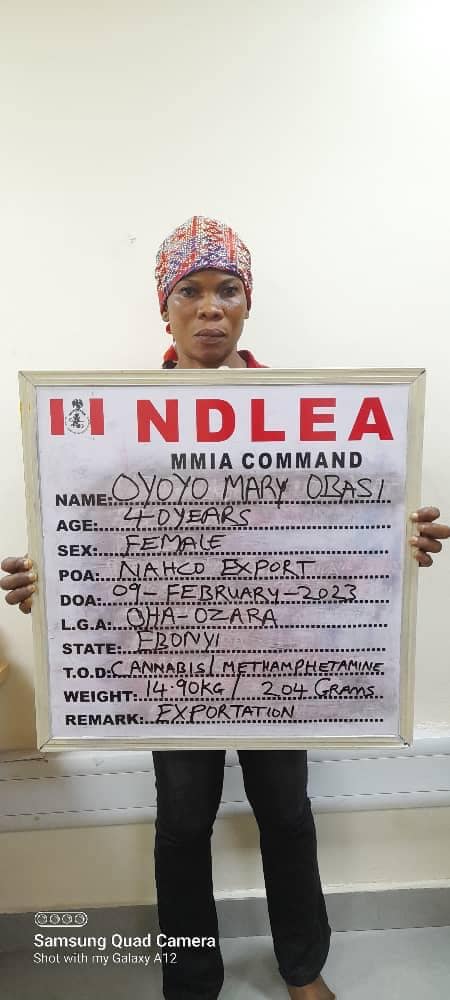 NDLEA
MMIA COMMAND
NAME: OYOYO MARY OBASI
AGE: 40YEARS
SEX: FEMALE
POA: NAHCO EXPORT
DOA: 09-FEBRUARY-2023
L.G.A: OHA-OZARA
STATE: EBONYI
T.O.D: CANNABIS/METHAMPHETAMINE
WEIGHT: 14.90KG/ 204 GRAMS
REMARK: EXPORTATION
Samsung Quad Camera
Shot with my Galaxy A12